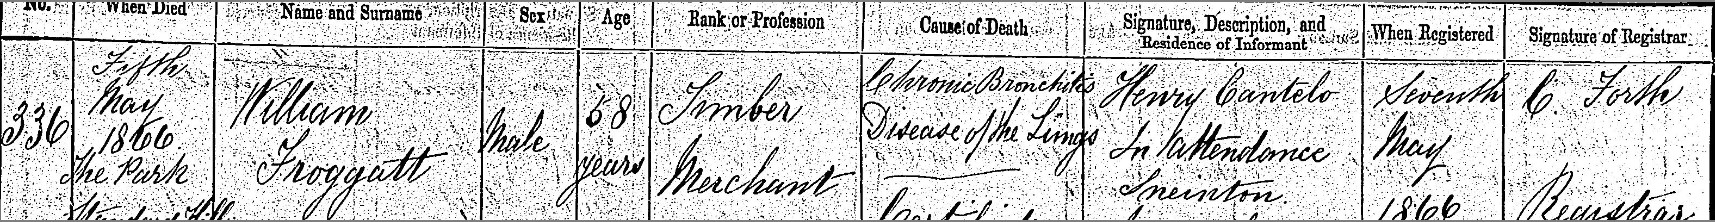 No. When Died Name and Surname Sex Age Rank or Profession Cause of Death Signature, Description, and Residence of Informant When Registered Signature of Registrar
336
Fifth
May
1866
The Park
William
Froggatt
Male
58
years
Timber
Merchant
Chronic Bronchitis
Disease of the Lungs
Henry Cantelo
In Attendance
Sneinton
Seventh
May
1866
C. Forth
Registrar